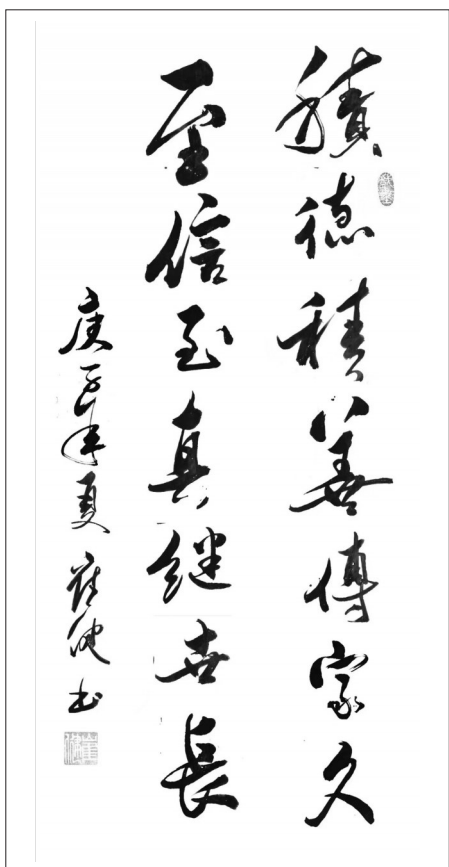 積德積善傳家久
至信至真繼世長
庚子年夏 崔健书